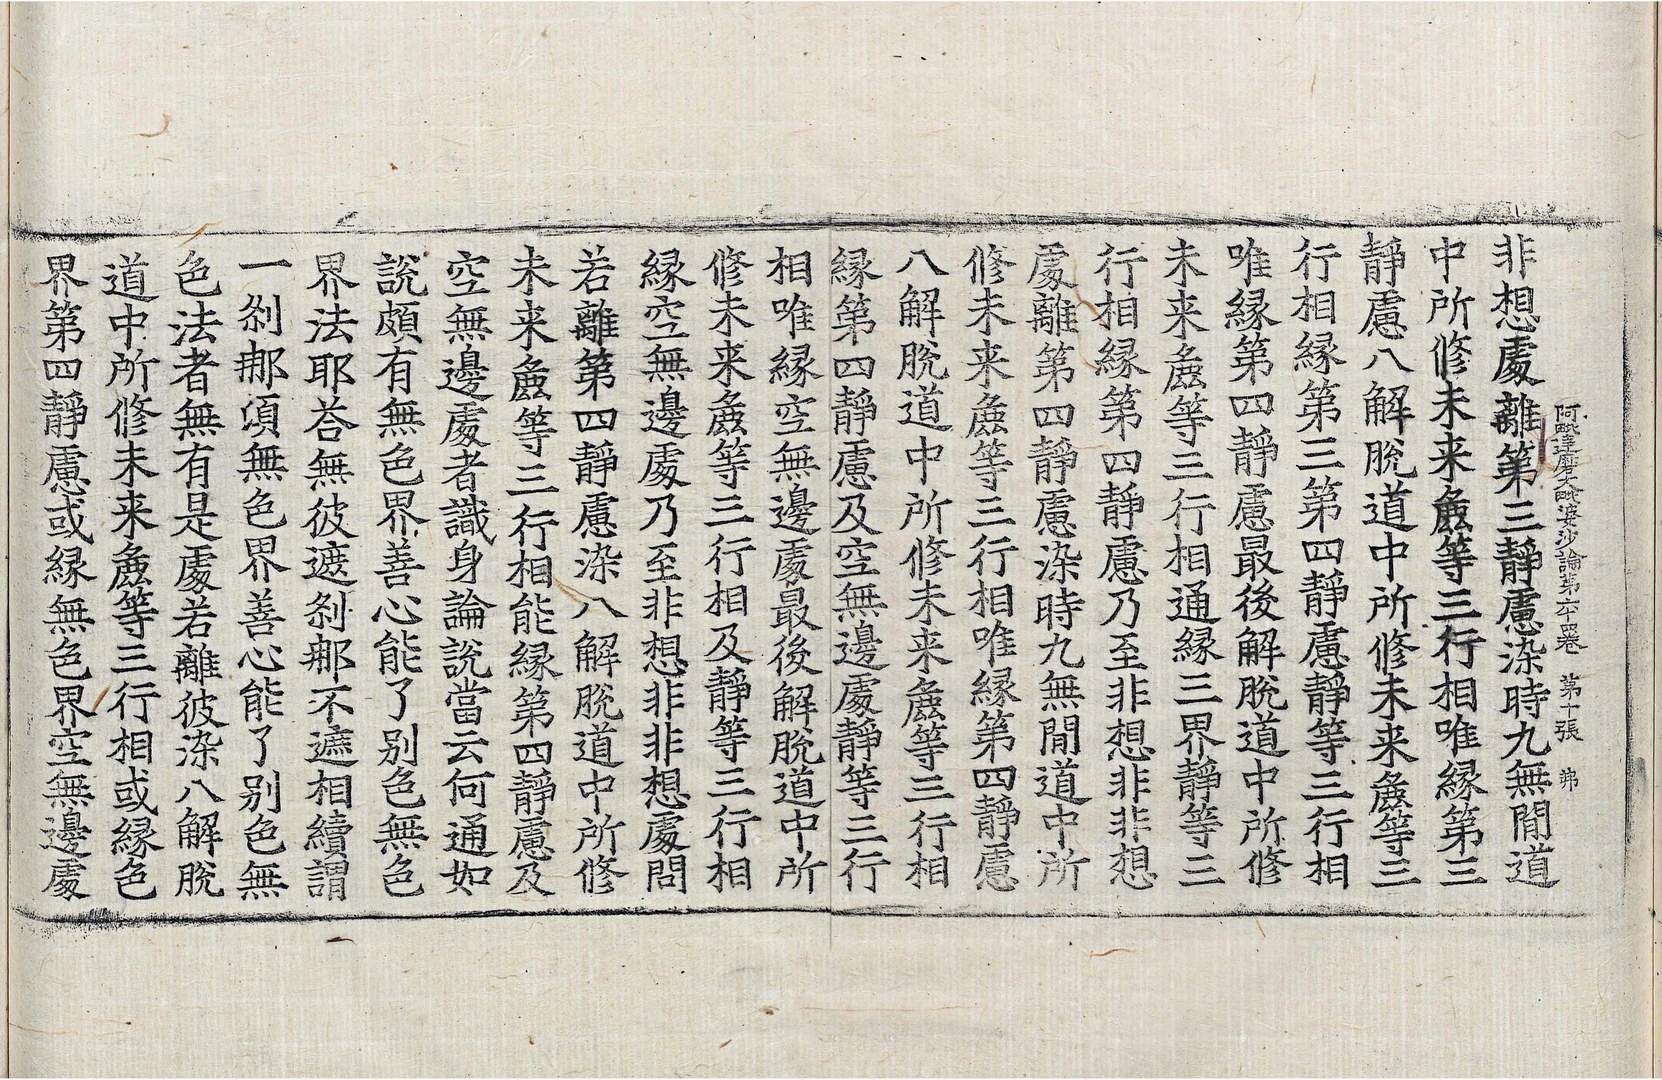 阿毗達磨大毗婆沙論第六十四卷 第十張 弗
非想處離第三靜慮染時九無間道
中所修未来麁等三行相唯緣第三
靜慮八解脫道中所修未来麁等三
行相緣第三第四靜慮靜等三行相
唯緣第四靜慮最後解脫道中所修
未来麁等三行相通緣三界靜等三
行相緣第四靜慮乃至非想非非想
處離第四靜慮染時九無間道中所
修未来麁等三行相唯緣第四靜慮
八解脫道中所修未来麁等三行相
緣第四靜慮及空無邊處靜等三行
相唯緣空無邊處最後解脫道中所
修未来麁等三行相及靜等三行相
緣空無邊處乃至非想非非想處問
若離第四靜慮染八解脫道中所修
未来麁等三行相能緣第四靜慮及
空無邊處者識身論說當云何通如
說頗有無色界善心能了別色無色
界法耶荅無彼遮剎那不遮相續謂
一剎那頃無色界善心能了別色無
色法者無有是處若離彼染八解脫
道中所修未来麁等三行相或緣色
界第四靜慮或緣無色界空無邊處